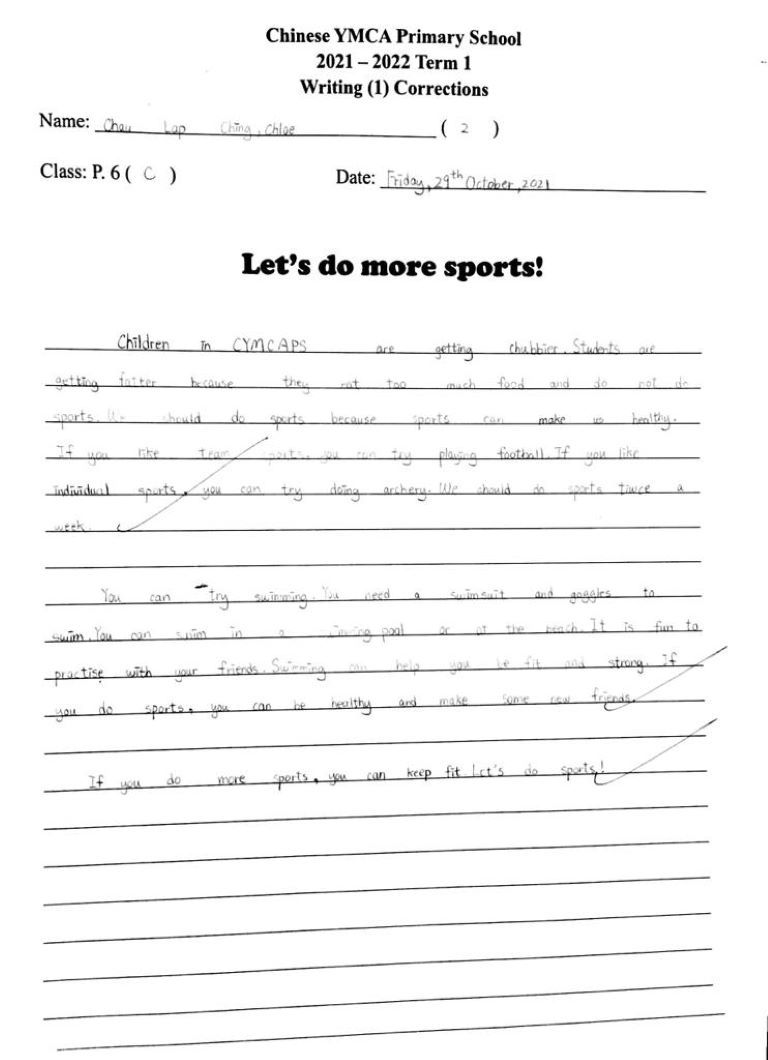 Chinese YMCA Primary School
2021 – 2022 Term 1
Writing (1) Corrections
Name: Chau Lap Ching, Chloe ( 2 )
Class: P. 6 ( C ) Date: Friday, 29th October, 2021
Let's do more sports!
Children in CYMCAPS are getting chubbier. Students are
getting fatter because they eat too much food and do not do
sports. We should do sports because sports can make us healthy.
If you like team sports, you can try playing football. If you like
individual sports, you can try doing archery. We should do sports twice a
week.
You can try swimming. You need a swimsuit and goggles to
swim. You can swim in a swimming pool or at the beach. It is fun to
practise with your friends. Swimming can help you be fit and strong. If
you do sports, you can be healthy and make some new friends.
If you do more sports, you can keep fit. Let's do sports!